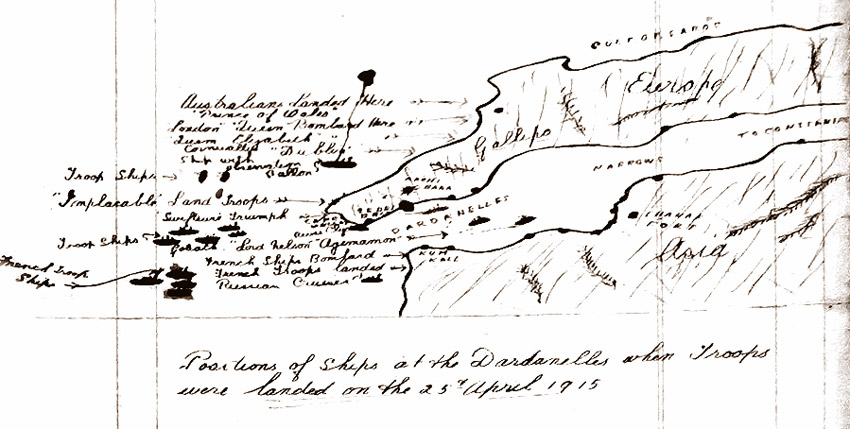 GULF OF SAROS
Europe
Australians Landed Here
"Prince of Wales"
London "Queen Bombard Here
Queen Elizabeth"
Cornwallis "Dublin"
Ship with
Observation
Ballon"
Gallipo
TO CONSTANTINO
NARROWS
Troop Ships
ACHI
BABA
"Implacable" Land Troops
SEDEL
BAHR
Swiftsure Triumph
DARDANELLES
CHANAK
FORT
Asia
Troop Ships
Goliath "Lord Nelson" Agemamon
French Ships Bombard
KUM
KALI
French Troop
Ships
French Troops landed
Russian Cruiser"
Positions of Ships at the Dardanelles when Troops
were landed on the 25th April 1915